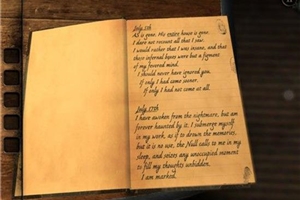 July 5th
All is gone. My entire house is gone.
I dare not recount all that I saw.
I would rather that I was insane, and that
these infernal eyes were but a figment
of my fevered mind.
I should never have ignored you.
If only I had come sooner.
If only I had not come at all.
July 17th
I have awoken from the nightmare, but am
forever haunted by it. I submerge myself
in my work, as if to drown the memories,
but it is no use, the Null calls to me in my
sleep, and seizes any unoccupied moment
to fill my thoughts unbidden.
I am marked.